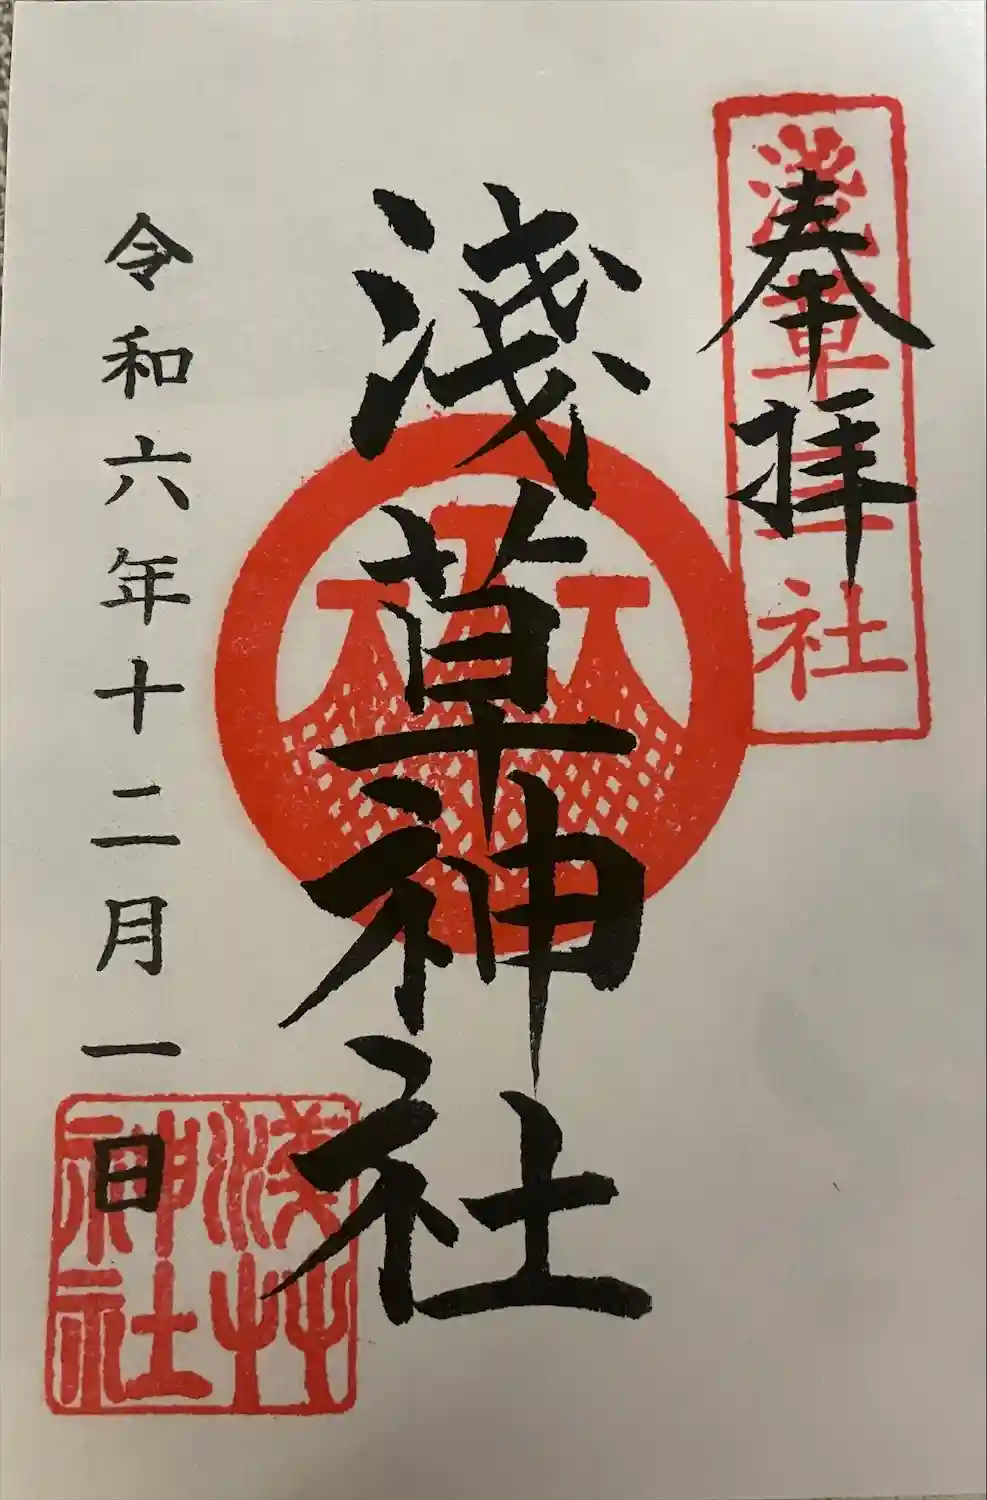 奉拝
浅草三社
淺草神社
令和六年十二月一日
淺艸
神社